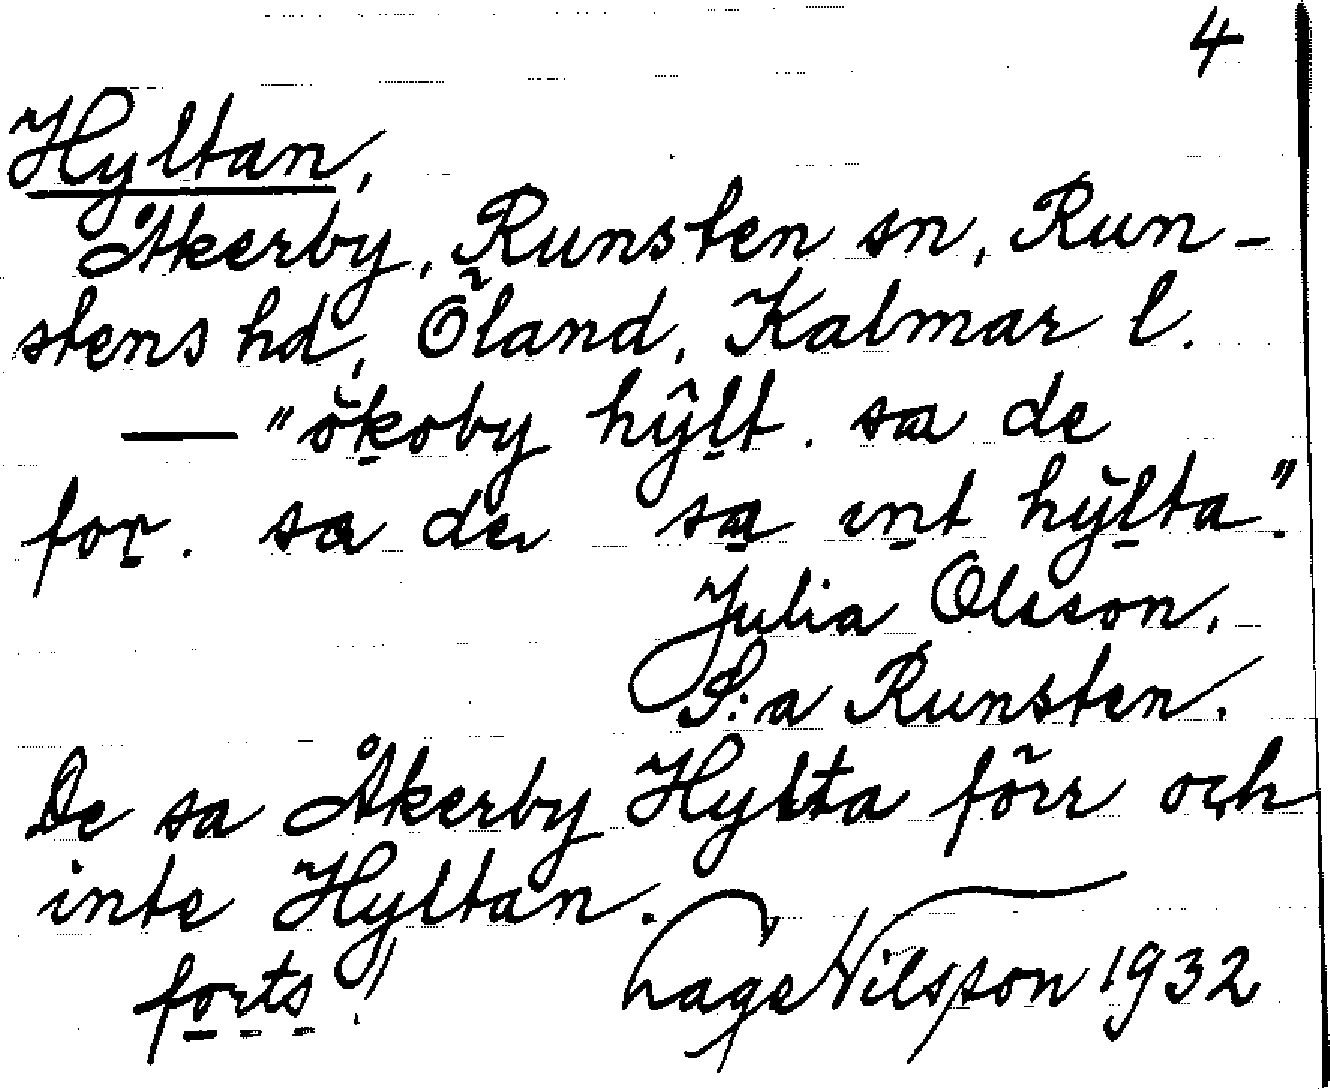 4
Hyltan,
Åkerby, Runsten sn, Run-
stens hd, Öland, Kalmar l.
— "ökoby hylt. sa de
for. sa de sa int hylta".
Julia Olsson.
S:a Runsten.
De sa Åkerby Hylta förr och
inte Hyltan.
forts! Lage Nilsson 1932